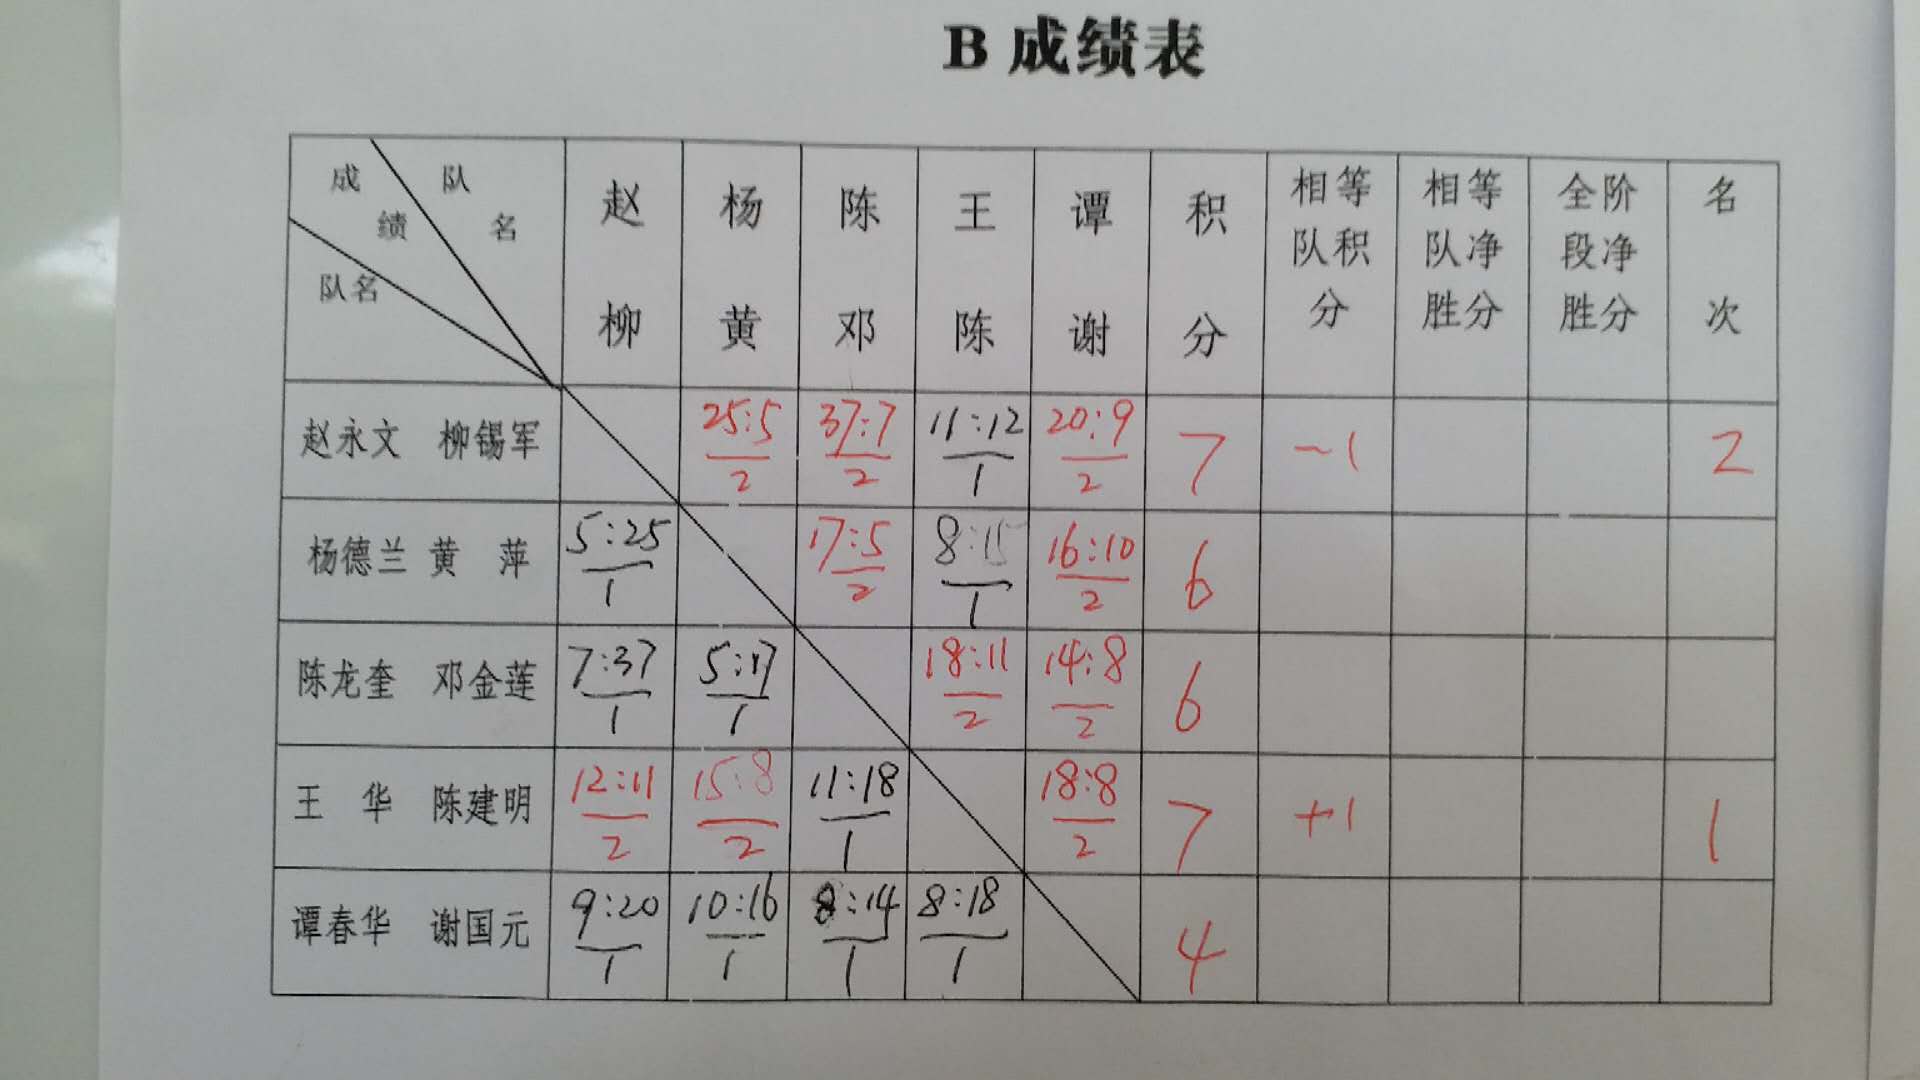 B 成绩表
成绩 队名 队名 赵柳 杨黄 陈邓 王陈 谭谢 积分 相等队积分 相等队净胜分 全阶段净胜分 名次
赵永文 柳锡军 25:5 2 37:7 2 11:12 1 20:9 2 7 -1 2
杨德兰 黄 萍 5:25 1 17:5 2 8:15 1 16:10 2 6
陈龙奎 邓金莲 7:37 1 5:17 1 18:11 2 14:8 2 6
王 华 陈建明 12:11 2 15:8 2 11:18 1 18:8 2 7 +1 1
谭春华 谢国元 9:20 1 10:16 1 8:14 1 8:18 1 4